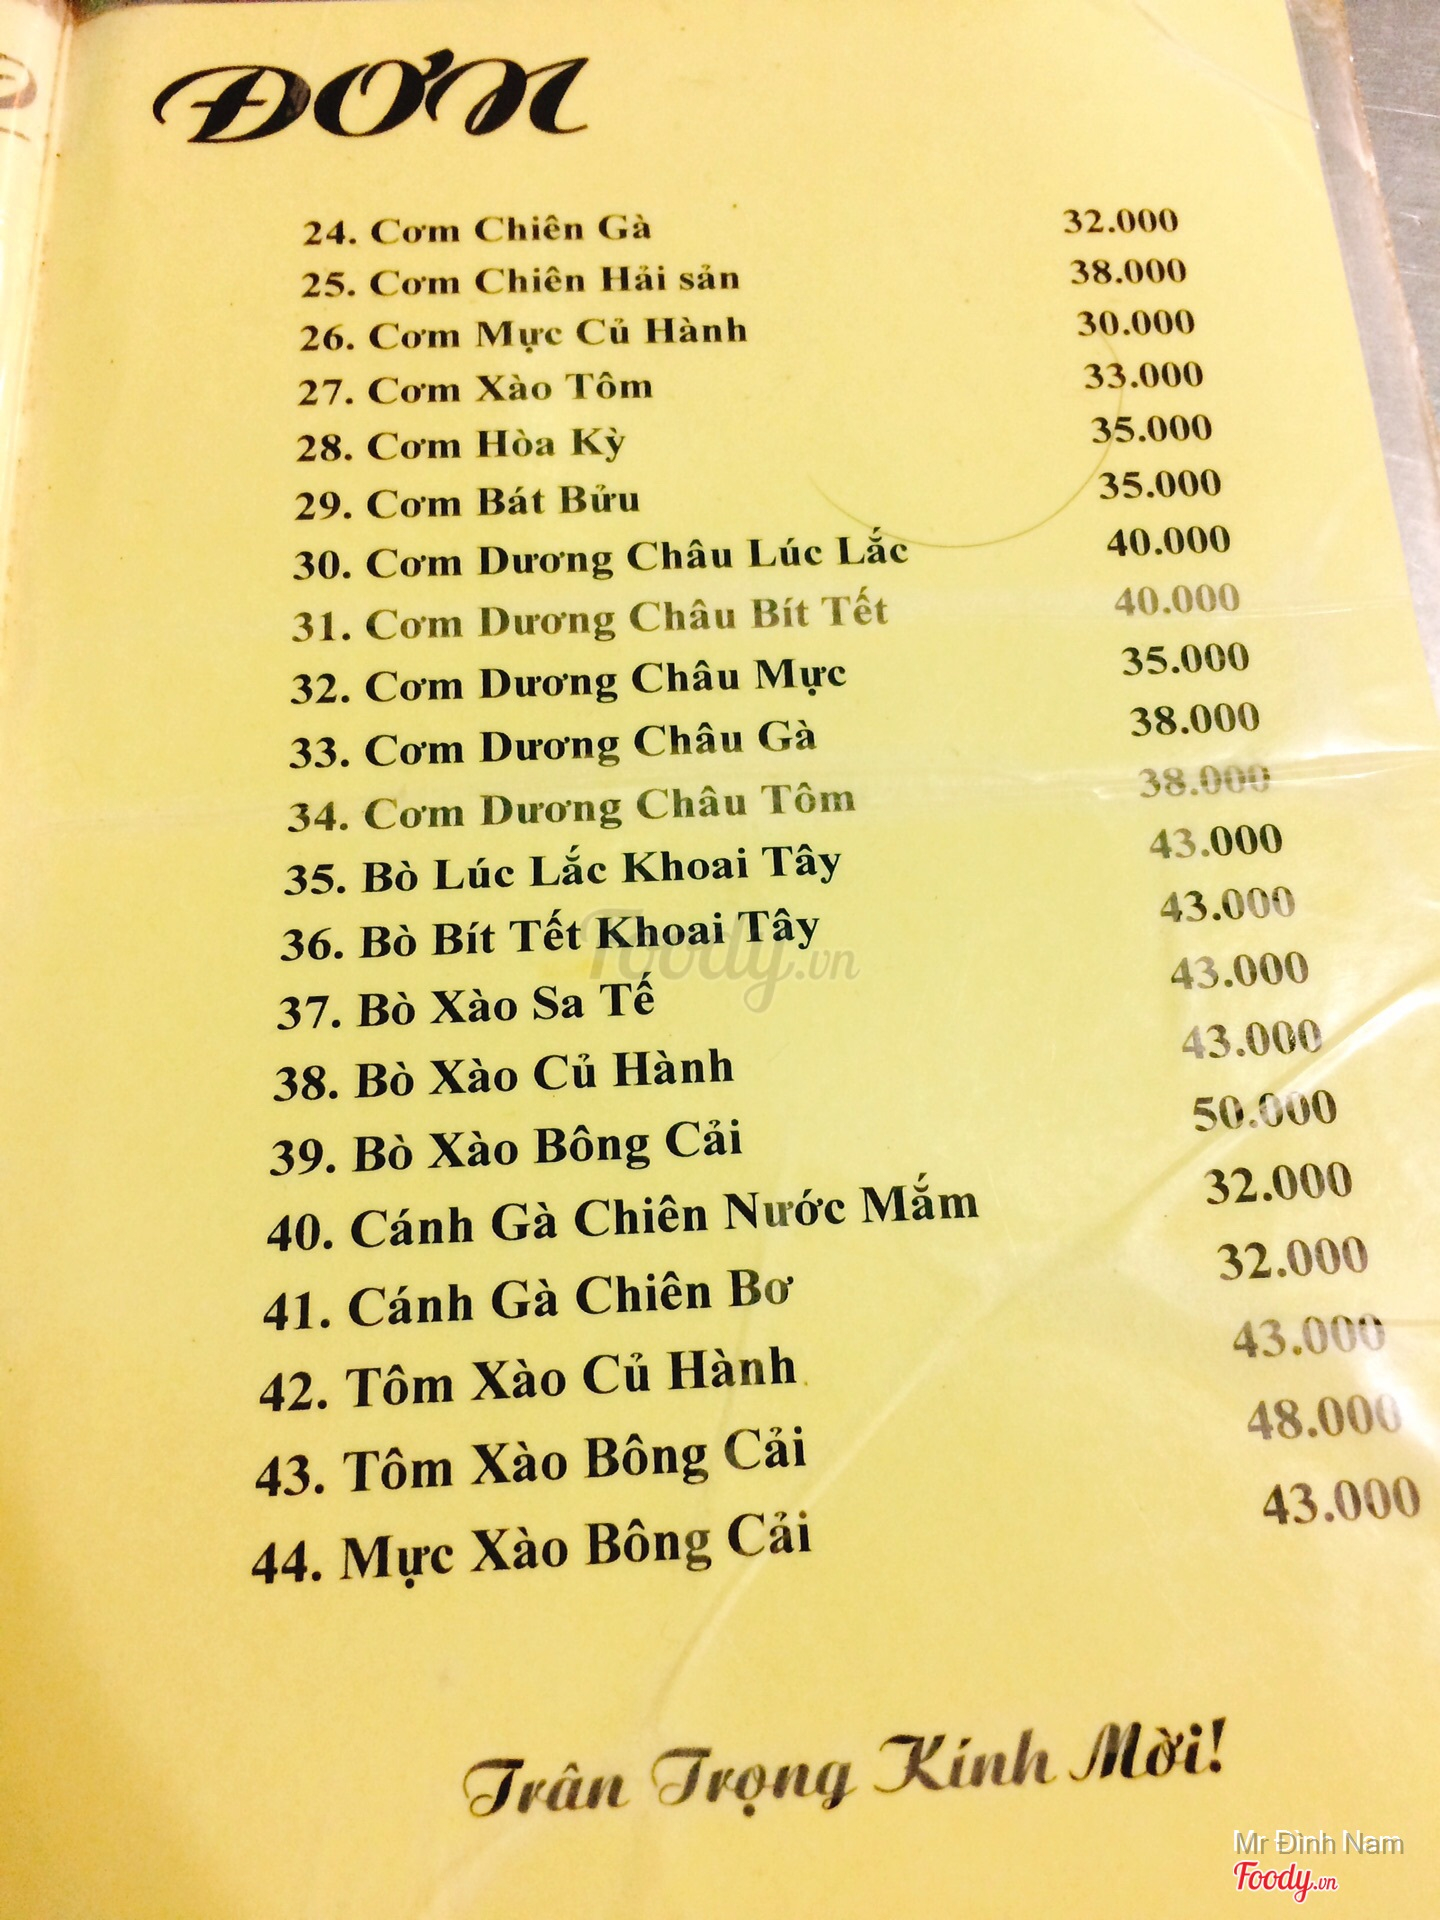 ĐƠN
24. Cơm Chiên Gà 32.000
25. Cơm Chiên Hải sản 38.000
26. Cơm Mực Củ Hành 30.000
27. Cơm Xào Tôm 33.000
28. Cơm Hòa Kỳ 35.000
29. Cơm Bát Bửu 35.000
30. Cơm Dương Châu Lúc Lắc 40.000
31. Cơm Dương Châu Bít Tết 40.000
32. Cơm Dương Châu Mực 35.000
33. Cơm Dương Châu Gà 38.000
34. Cơm Dương Châu Tôm 38.000
35. Bò Lúc Lắc Khoai Tây 43.000
36. Bò Bít Tết Khoai Tây 43.000
37. Bò Xào Sa Tế 43.000
38. Bò Xào Củ Hành 43.000
39. Bò Xào Bông Cải 50.000
40. Cánh Gà Chiên Nước Mắm 32.000
41. Cánh Gà Chiên Bơ 32.000
42. Tôm Xào Củ Hành 43.000
43. Tôm Xào Bông Cải 48.000
44. Mực Xào Bông Cải 43.000
Foody.vn
Trân Trọng Kính Mời!
Mr Đình Nam
Foody.vn